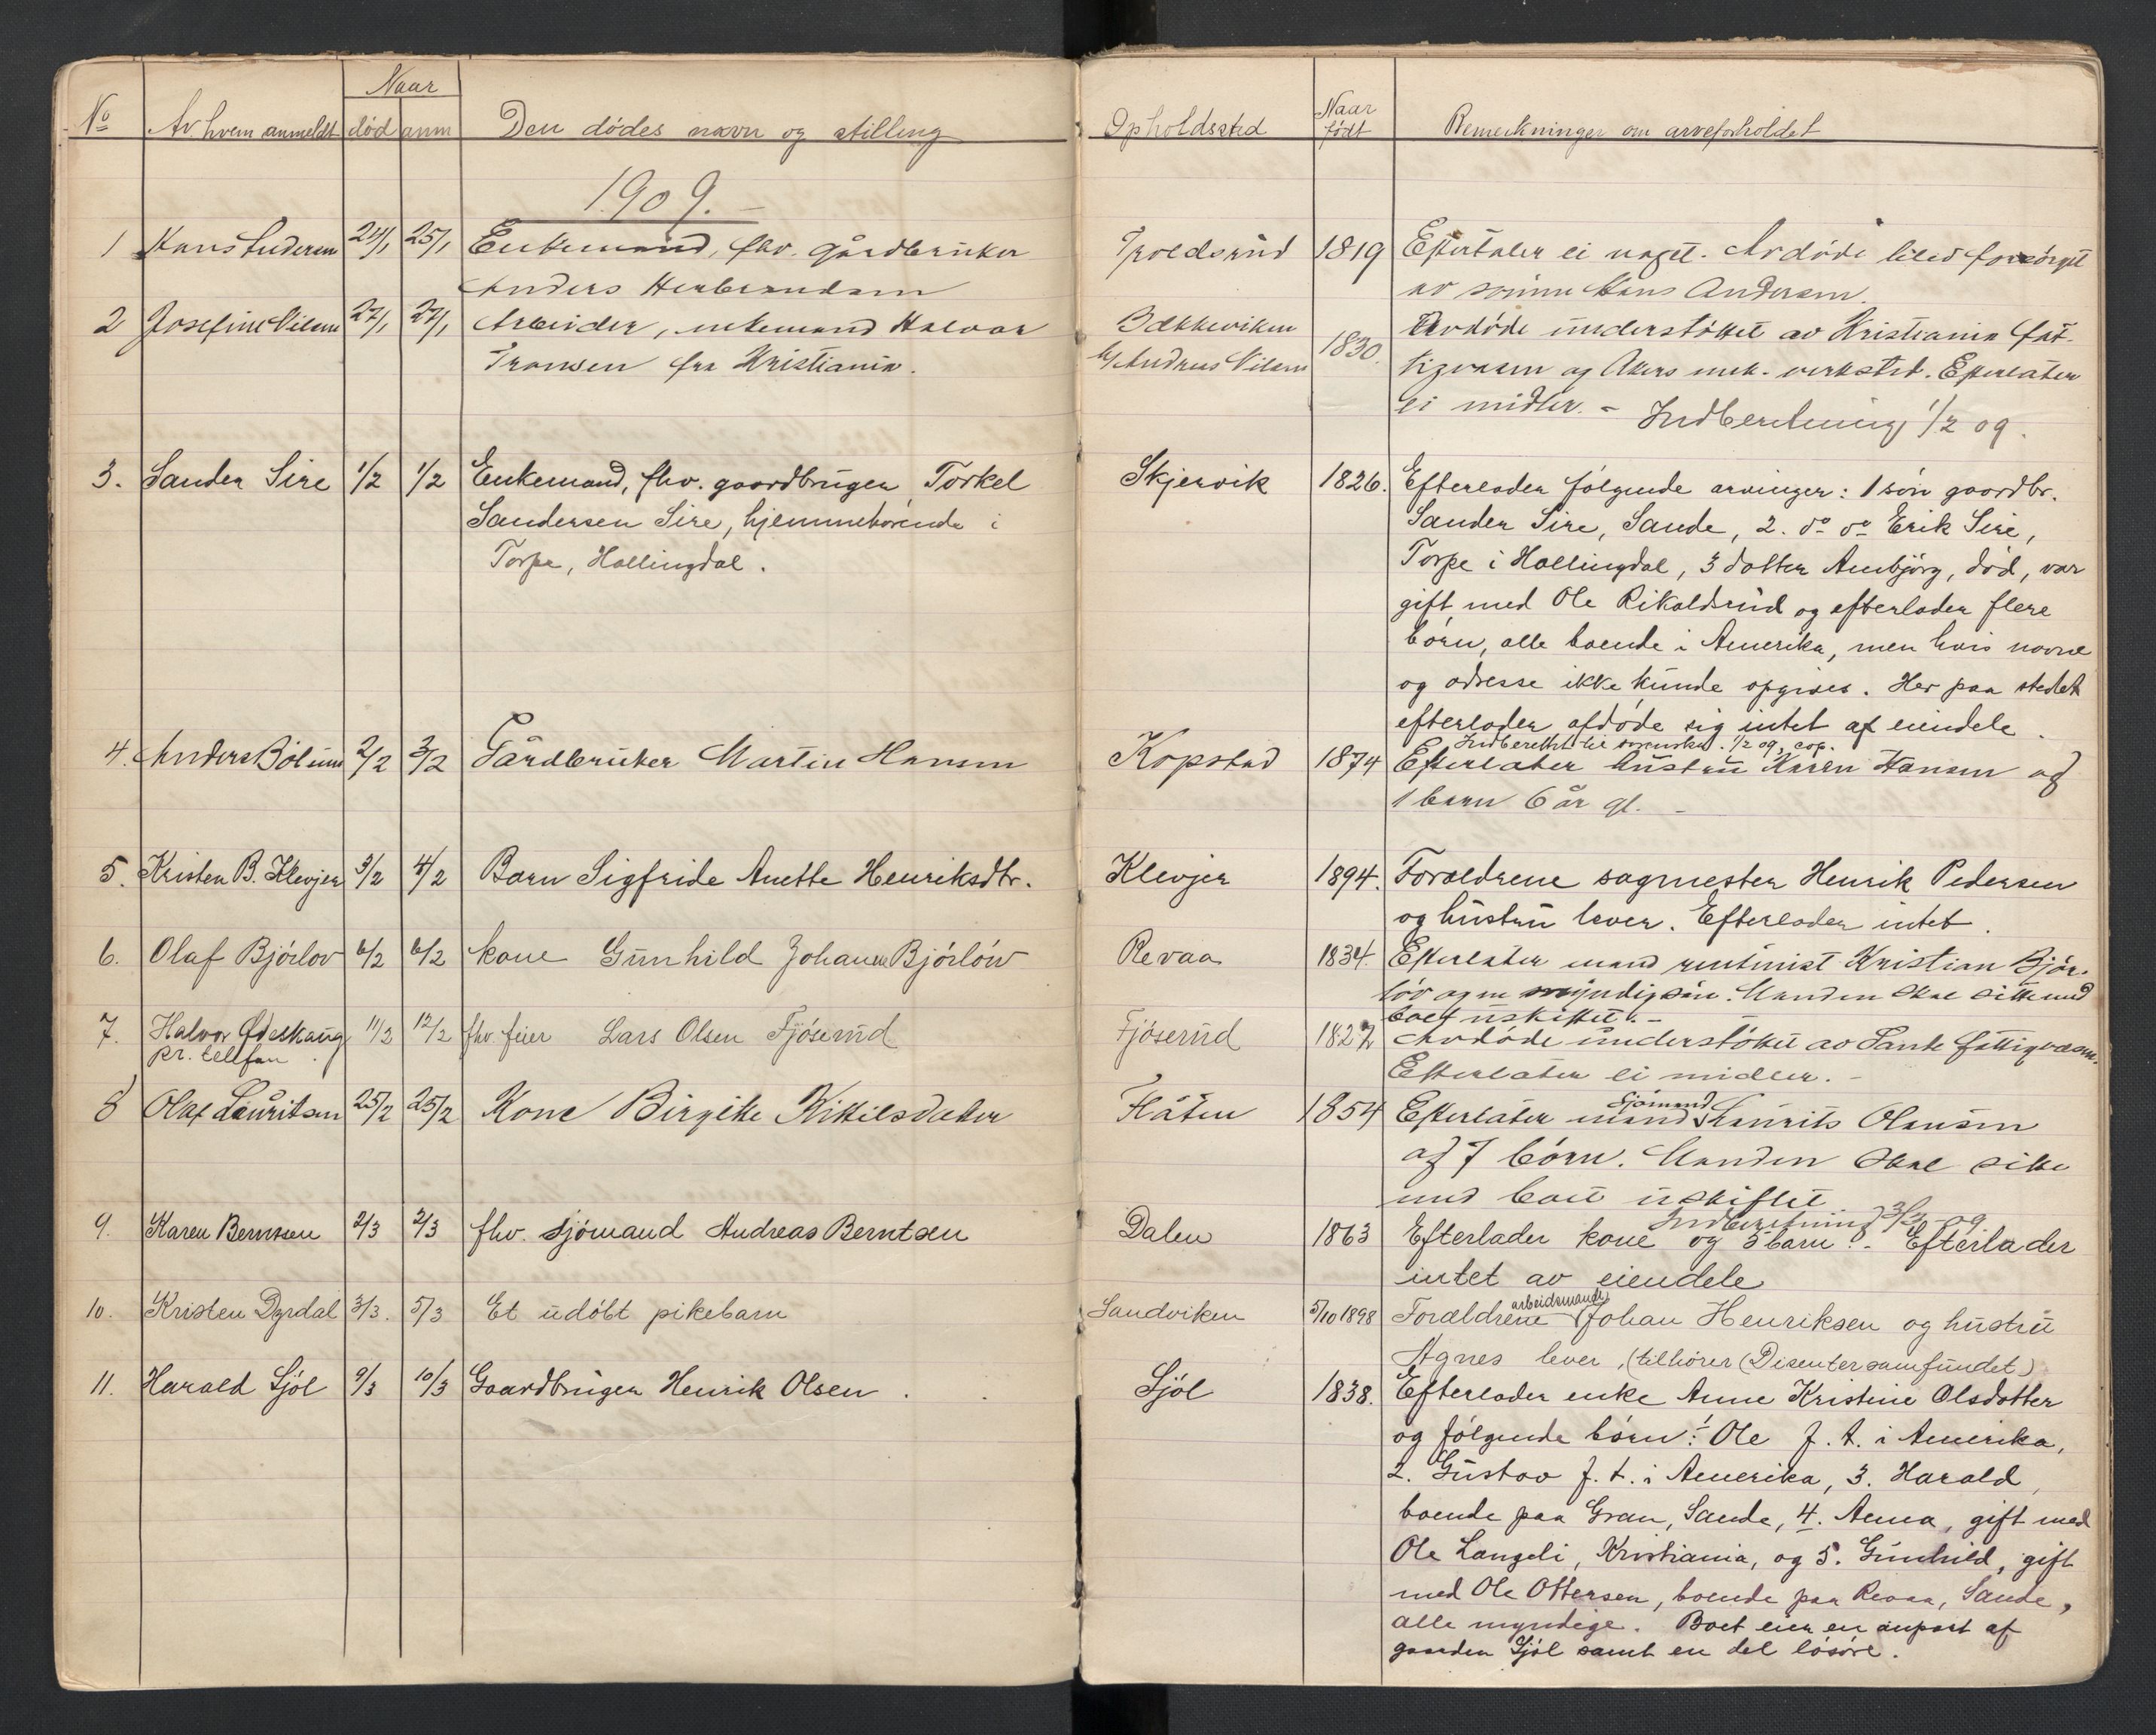 No Av hvem anmeldt Naar død anm Den dødes navn og stilling Opholdssted Naar født Bemerkninger om arveforholdet
1909.
1 Hans Andersen 24/1 25/1 Enkemand, fhv. gårdbruker
Anders Herbrandsen
Troldsrud 1819 Efterlater ei noget. Avdøde blev forsørget
av sønnen Hans Andersen.
2 Josefine Nilsen 27/1 27/1 Arbeider, enkemand Halvor
Transen fra Kristiania.
Bækkeviken
h/ Andreas Nilsen
1830. Avdøde understøttet av Kristiania fat-
tigvæsen og Akers mek. verksted. Efterlater
ei midler. - Indberetning 1/2 09.
3. Sander Sire 1/2 1/2 Enkemand, fhv. gaardbruger Torkel
Sandersen Sire, hjemmehörende i
Torpe, Hallingdal.
Skjervik 1826. Efterlader følgende arvinger: 1 sön gaardbr.
Sander Sire, Sande, 2. do do Erik Sire,
Torpe i Hallingdal, 3 datter Ambjörg, död, var
gift med Ole Rikoldsrud og efterlader flere
börn, alle boende i Amerika, men hvis navne
og adresse ikke kunde opgives. Her paa stedet
efterlader afdöde sig intet af eiendele.
Indberettet til sorensk. 1/2 09, cop.
4. Anders Bölum 2/2 3/2 Gårdbruker Martin Hansen
Kopstad 1874 Efterlater hustru Karen Hansen og
1 barn 6 år gl. -
5. Kristen B. Klevjer 3/2 4/2 Barn Sigfride Anette Henriksdtr.
Klevjer 1894. Foraeldrene sagmester Henrik Pedersen
og hustru lever. Efterlader intet.
6. Olaf Bjórlov 6/2 6/2 kone Gunhild Johanne Bjórlów
Revaa 1834. Efterlater mand rentenist Kristian Bjór-
lóv og en myndig sön. Manden skal sitte med
boet uskiftet. -
7. Halvor Ødeskaug 11/2 12/2 fhv feier Lars Olsen Fjöserud
pr. telefon.
Fjöserud 1827 Avdøde understøttet av Sande fattigvæsen.
Efterlater ei midler. -
8 Olaf Lauritsen 25/2 25/2 Kone Birgitte Kittilsdatter
Flåten 1854 Efterlater mand sjömand Laurits Olausen
og 7 börn. Manden skal sitte
med boet uskiftet
Indberetning 3/3 09
9. Karen Berntsen 2/3 2/3 fhv. sjömand Andreas Berntsen
Dalen 1863 Efterlader kone og 5 barn. - Efterlader
intet av eiendele
10. Kristen Dyrdal 3/3. 5/3 Et udöbt pikebarn
Sandviken 5/10 1898 Forældrene arbeidsmand Johan Henriksen og hustru
Agnes lever, (tilhörer (Disentersamfundet)
11. Harald Sjöl 9/3 10/3 Gaardbruger Henrik Olsen.
Sjöl 1838. Efterlader enke Anne Kristine Olsdatter
og fölgende börn: 1 Ole f. t. i Amerika,
2. Gustav f. t. i Amerika, 3. Harald,
boende paa Gran, Sande, 4. Anna, gift med
Ole Langeli, Kristiania, og 5. Gunhild, gift
med Ole Ottersen, boende paa Revaa, Sande,
alle myndige. Boet eier en anpart af
gaarden Sjöl samt en del lösöre.